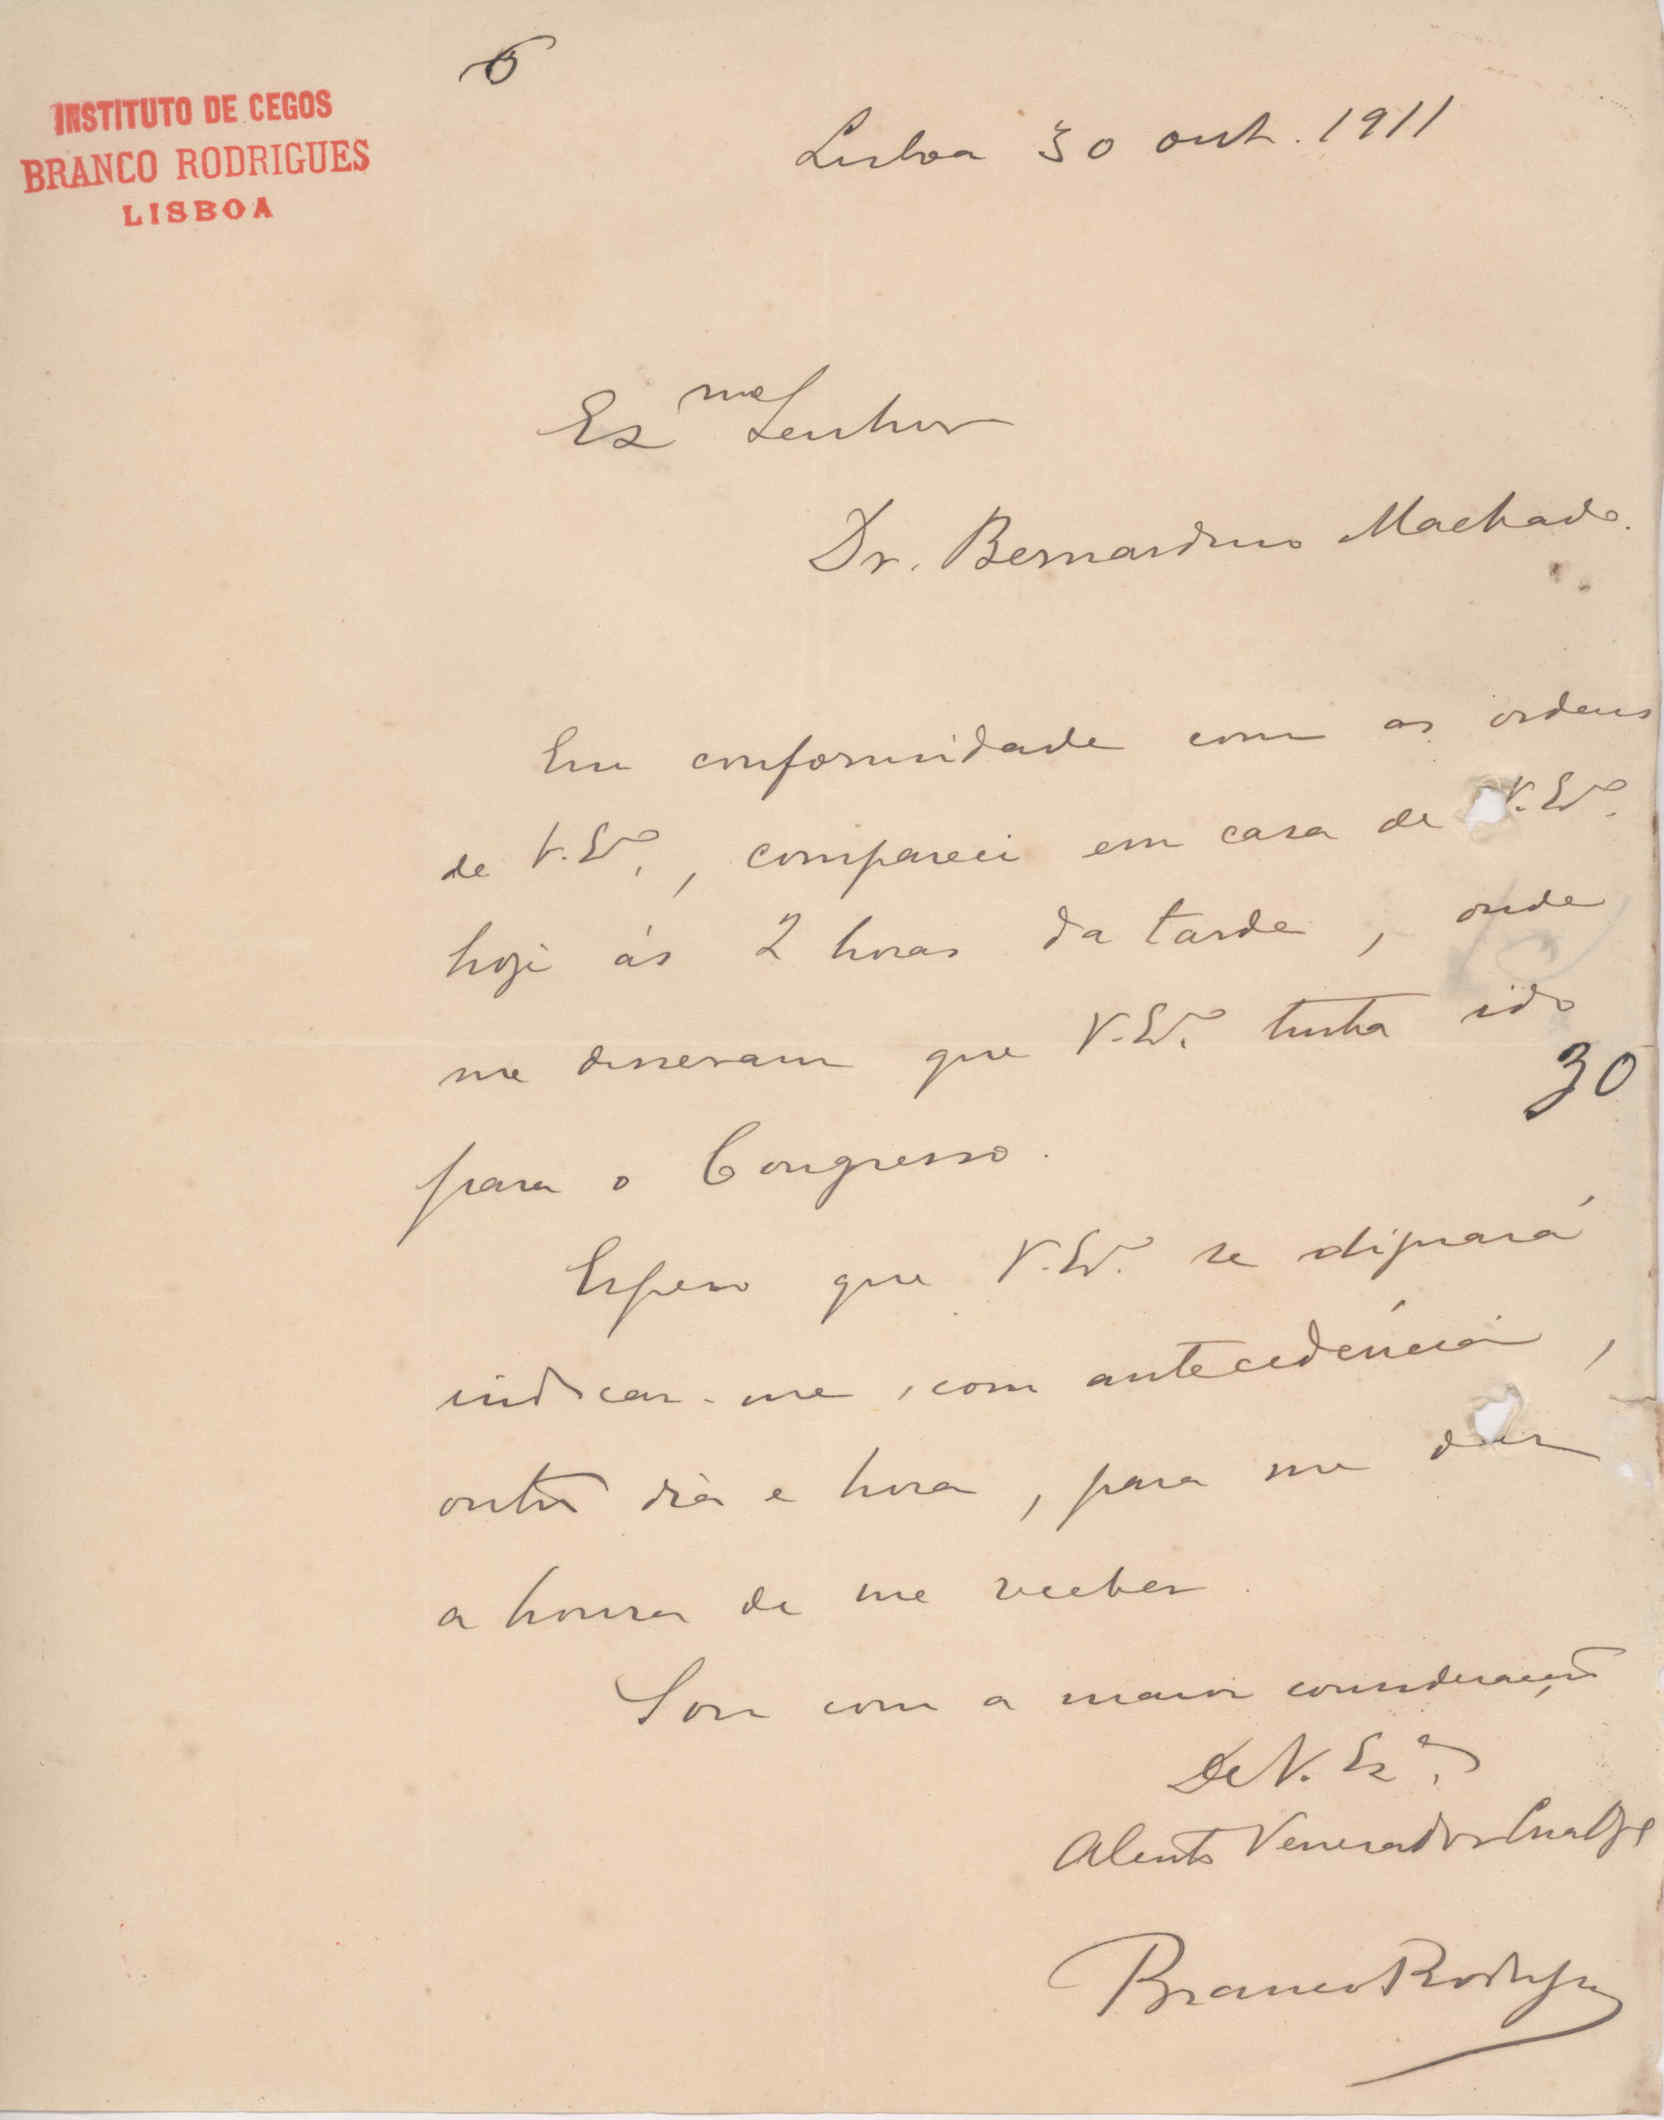 6
INSTITUTO DE CEGOS
BRANCO RODRIGUES
LISBOA
Lisboa 30 out. 1911
Exmo Senhor
Dr. Bernardino Machado.
Em conformidade com as ordens
de V. Exa., compareci em casa de V. Exa.
hoje ás 2 horas da tarde, onde
me disseram que V. Exa. tinha ido
30
para o Congresso.
Espero que V. Exa. se dignará
indicar-me, com antecedência,
outro dia e hora, para me dar
a honra de me receber.
Sou com a maior consideração
De V. Exa.
Atento Venerador
Branco Rodrigues